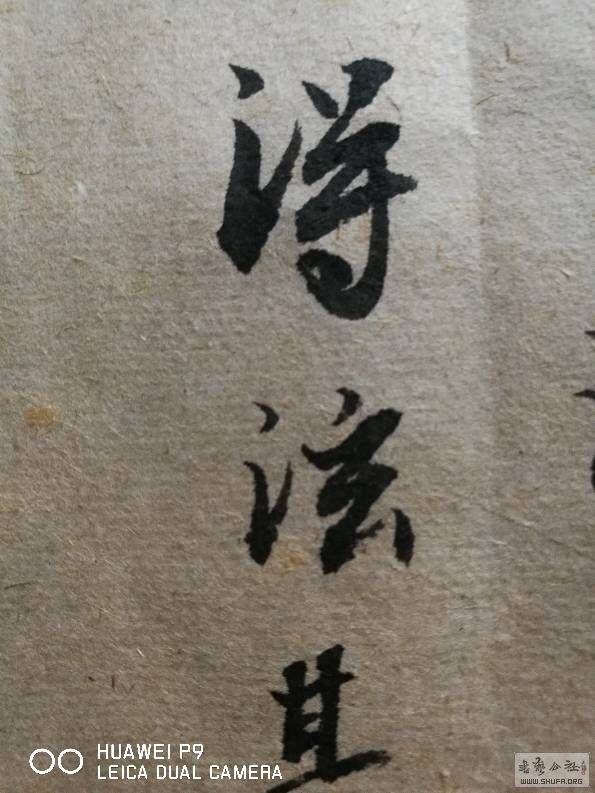 得
法
HUAWEI P9
LEICA DUAL CAMERA
书艺公社
WWW.SHUFA.ORG